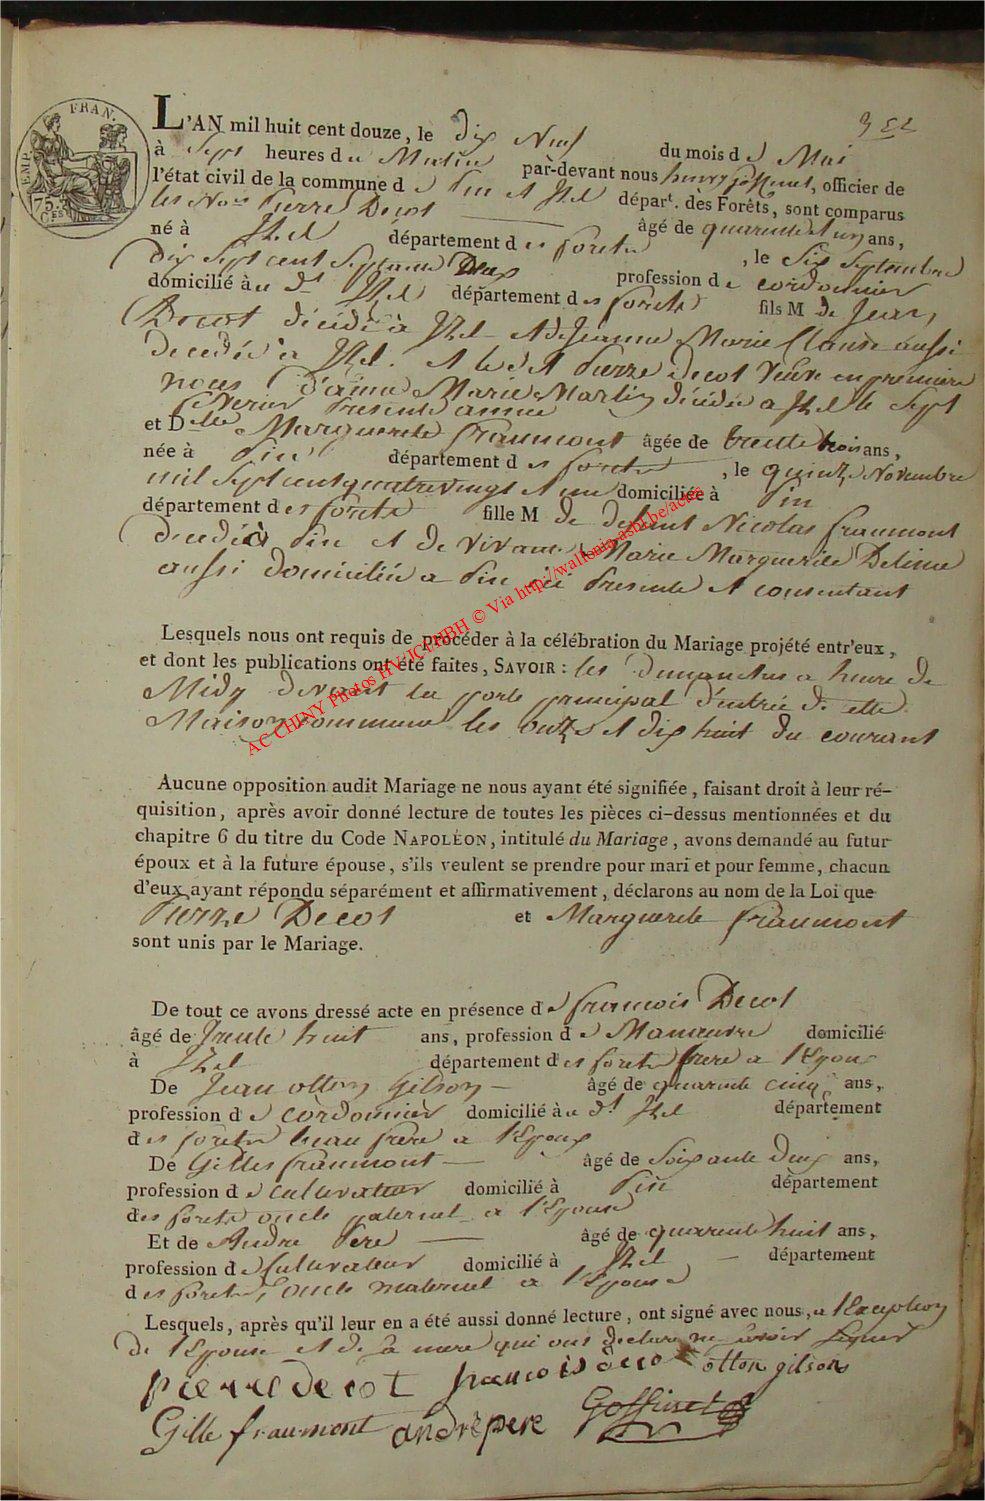 EMP. FRAN.
75.
CES
L'AN mil huit cent douze, le dix Neuf du mois de Mai
à Sept heures de Matin par-devant nous henry goffinet, officier de
l'état civil de la commune de Pin et Izel départ. des Forêts, sont comparus
les Noés Pierre Decot âgé de quarente et un ans,
né à Izel département des forets, le Six Septembre
Dix Sept cent Septante Deux profession de cordonnier
domicilié àu dt Izel département des forets fils M de Jean
Decot décédé à Izel et de Jeanne Marie Clause aussi
decedée a Izel. et le dt Pierre Decot veuve en premiere
nous d'anne Marie Martin décédée a Izel le Sept
fevrier Presente année
et Delle Marguerite fraumont âgée de trente trois ans,
née à Pin département des forets, le quinze Novembre
mil Sept cent quatre vingt et une domiciliée à Pin
département des forets fille M de defunt Nicolas fraumont
decedé à Pin et de vivante Marie Marguerite Delime
aussi domiciliée a Pin ici Presente et consentant
Lesquels nous ont requis de procéder à la célébration du Mariage projété entr'eux,
et dont les publications ont été faites, SAVOIR : les dimanches a heure de
Midy devant la porte principal d'entrée de cette
Maison commune les onze et dix huit du courant
AC CHINY Photos HV-JCT/HBH © Via http://wallonia-asbl.be/actes
Aucune opposition audit Mariage ne nous ayant été signifiée, faisant droit à leur ré-
quisition, après avoir donné lecture de toutes les pièces ci-dessus mentionnées et du
chapitre 6 du titre du Code NAPOLÉON, intitulé du Mariage, avons demandé au futur
époux et à la future épouse, s'ils veulent se prendre pour mari et pour femme, chacun
d'eux ayant répondu séparément et affirmativement, déclarons au nom de la Loi que
Pierre Decot et Marguerite fraumont
sont unis par le Mariage.
De tout ce avons dressé acte en présence de francois Decot
âgé de Trente huit ans, profession de Manœuvre domicilié
à Izel département des forets frere a l'Epoux
De Jean otton Gilson âgé de quarente cinq ans,
profession de cordonnier domicilié àu dt Izel département
des forets beau frere a l'Epoux
De Gilles fraumont âgé de Soixante Deux ans,
profession de cultivateur domicilié à Pin département
des forets oncle paternel a l'Epouse
Et de Andre Pere âgé de quarente huit ans,
profession de Cultivateur domicilié à Izel département
des forets, oncle maternel a l'Epouse
Lesquels, après qu'il leur en a été aussi donné lecture, ont signé avec nous, a l'Exception
de l'Epouse et de sa mere qui ont declaré ne savoir signer
pierre decot francois decot otton gilson
Gille fraumont andré pere Goffinet